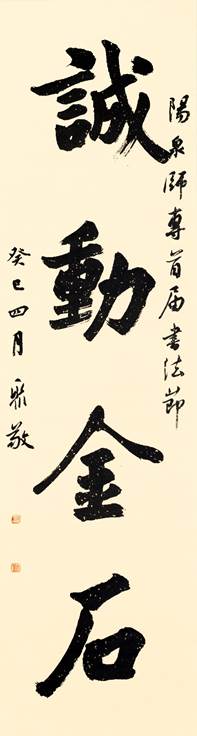 陽泉師專首届書法節
誠動金石
癸巳四月聚敬